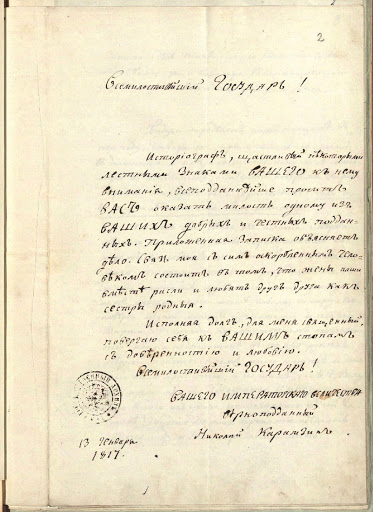 2
Всемилостивѣйшій ГОСУДАРЬ!
Исторіографъ, щастливый нѣкоторыми
лестными Знаками ВАШЕГО къ нему
вниманія, всеподданнѣйше проситъ
ВАСЪ оказать милость одному изъ
ВАШИХЪ добрыхъ и честныхъ поддан-
ныхъ. Приложенная Записка объясняетъ
дѣло. Связь моя съ симъ оскорбленнымъ чело-
вѣкомъ состоитъ въ томъ, что жены наши
вмѣстѣ росли и любятъ другъ друга какъ
сестры родныя.
Исполняя долгъ, для меня священный,
повергаю себя къ ВАШИМЪ стопамъ
съ довѣренностію и любовію.
Всемилостивѣйшій ГОСУДАРЬ!
ВАШЕГО ИМПЕРАТОРСКАГО ВЕЛИЧЕСТВА
вѣрноподданный
Николай Карамзинъ
13 Генваря
1817.